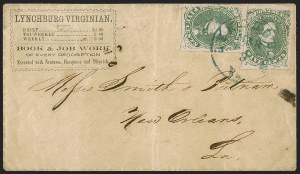 LYNCHBURG VIRGINIAN.
DAILY
TRI-WEEKLY
WEEKLY
BOOK & JOB WORK
OF EVERY DESCRIPTION
Executed with Neatness, Cheapness and Dispatch.
Messrs Smith & Putnam
New Orleans,
La.